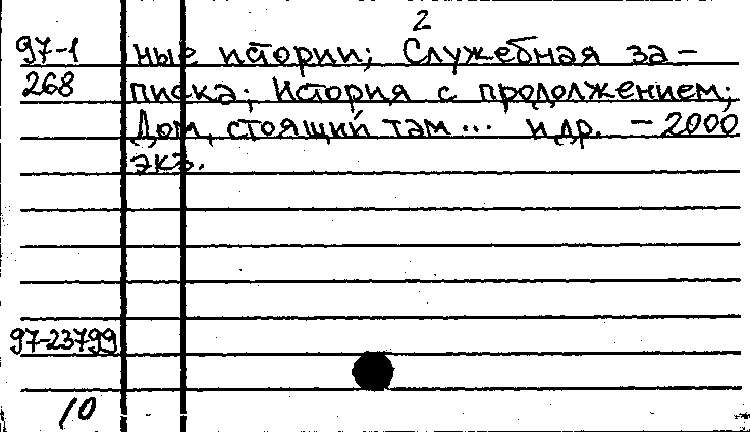 2
97-1 ные истории; Служебная за-
268 писка; История с продолжением;
Дом, стоящий там... и др. - 2000
экз.
97-23799
10